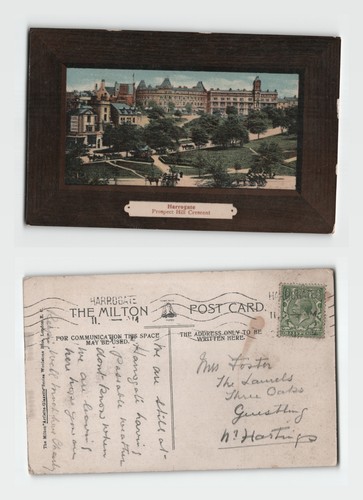 Harrogate
Prospect Hill Crescent
HARROGATE
THE MILTON
POST CARD.
FOR COMMUNICATION THIS SPACE
MAY BE USED.
THE ADDRESS ONLY TO BE
WRITTEN HERE.
We are still at-
Harrogate having
passable weather
don't know when
we are leaving
here hope you are
Keeping well
Mrs Foster
The Laurels
Three Oaks
Guestling
Nr Hastings